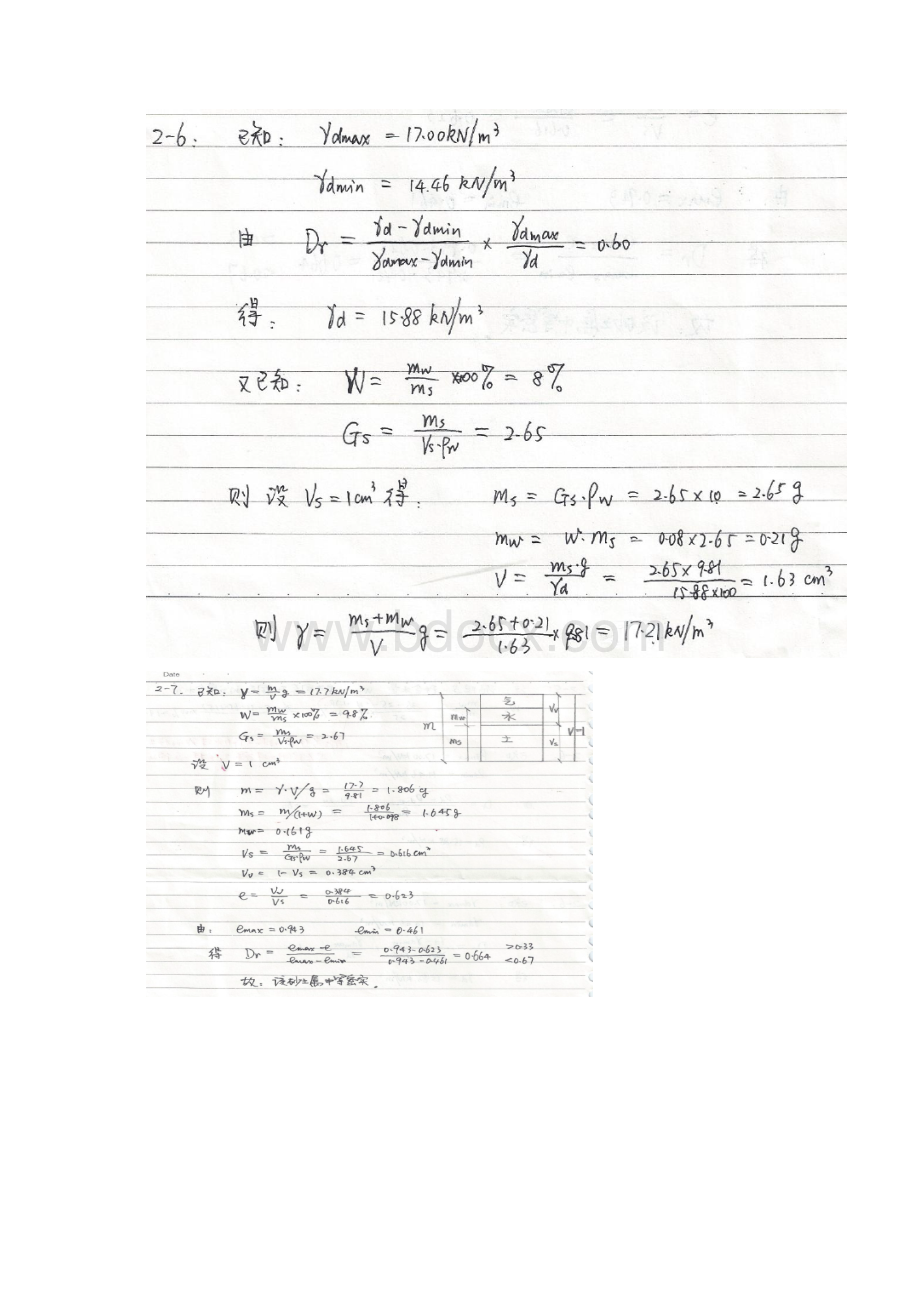 2-6: 已知: γdmax = 17.00kN/m³
γdmin = 14.46 kN/m³
由 Dr = (γd-γdmin)/(γdmax-γdmin) × γdmax/γd = 0.60
得: γd = 15.88 kN/m³
又已知: W = mw/ms ×100% = 8%
Gs = ms/(Vs·ρw) = 2.65
则设 Vs=1cm³ 得: ms = Gs·ρw = 2.65×10 = 2.65g
mw = W·ms = 0.08×2.65 = 0.21g
V = ms·g/γd = (2.65×9.81)/(15.88×100) = 1.63 cm³
则 γ = (ms+mw)/V g = (2.65+0.21)/1.63 × 9.81 = 17.21 kN/m³
www.bdocx.com
Date
2-7. 已知: γ = m/V g = 17.7kN/m³
W = mw/ms ×100% = 9.8%
Gs = ms/(Vs·ρw) = 2.67
m mw ms 气 水 土 Vv Vs V=1
设 V = 1 cm³
则 m = γ·V/g = 17.7/9.81 = 1.806 g
ms = m/(1+W) = 1.806/(1+0.098) = 1.645g
mw = 0.161g
Vs = ms/(Gs·ρw) = 1.645/2.67 = 0.616 cm³
Vv = 1-Vs = 0.384 cm³
e = Vv/Vs = 0.384/0.616 = 0.623
由: emax = 0.943 emin = 0.461
得 Dr = (emax-e)/(emax-emin) = (0.943-0.623)/(0.943-0.461) = 0.664 >0.33 <0.67
故: 该砂土属中等密实.